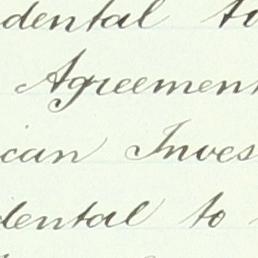 dental to
Agreement
can Inves
dental to